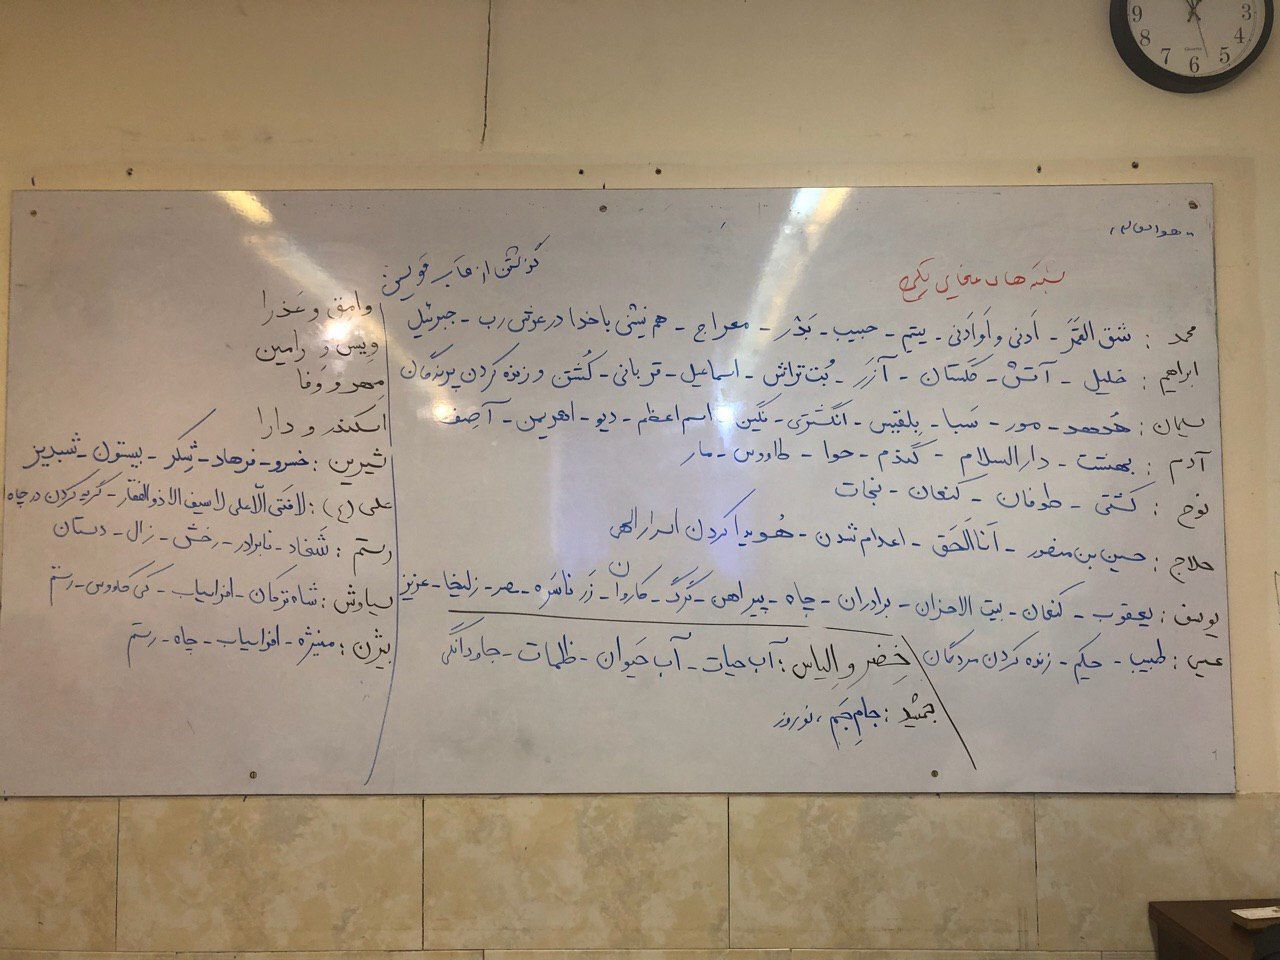 شبکه های معنایی تلمیح
محمد : شق القمَر - اَدنی و اَوادَنی - یتیم - حبیب - بَدْر - معراج - هم نشینی با خدا در عرش رب - جبرئیل
گذشتن از قاب قوسین
ابراهیم : خلیل - آتش - گلستان - آزَر - بُت تراش - اسماعیل - قربانی - کُشتن و زنده کردن پرندگان
سلیمان : هُدهد - مور - سَبا - بِلقیس - انگشتری - نگین - اسم اعظم - دیو - اهریمن - آصف
آدم : بهشت - دارالسلام - گندم - حوا - طاووس - مار
نوح : کشتی - طوفان - کنعان - نجات
حلاج : حسین بن منصور - اَناالحَق - اعدام شدن - هُویدا کردن اسرار الهی
یوسف : یعقوب - کنعان - بیت الاحزان - برادران - چاه - پیراهن - گرگ - کاروان - زَر ناسَره - مصر - زلیخا - عزیز
عیسی : طبیب - حکیم - زنده کردن مردگان
خِضر و اِلیاس : آب حیات - آب حیَوان - ظلمات - جاودانگی
جمشید : جامِ جَم ، نوروز
وامق و عَذرا
وِیس و رامین
مِهر و وَفا
اسکندر و دارا
شیرین : خسرو - فرهاد - شِکر - بیستون - شبدیز
علی (ع) : لافَتی اِلّا علی لا سیف الا ذوالفقار - گریه کردن در چاه
رستم : شَغاد - نابرادر - رخش - زال - دستان
سیاوش : شاه ترکان - افراسیاب - کی کاووس - رستم
بیژن : منیژه - افراسیاب - چاه - رستم
9
8
7
6
5
4
3